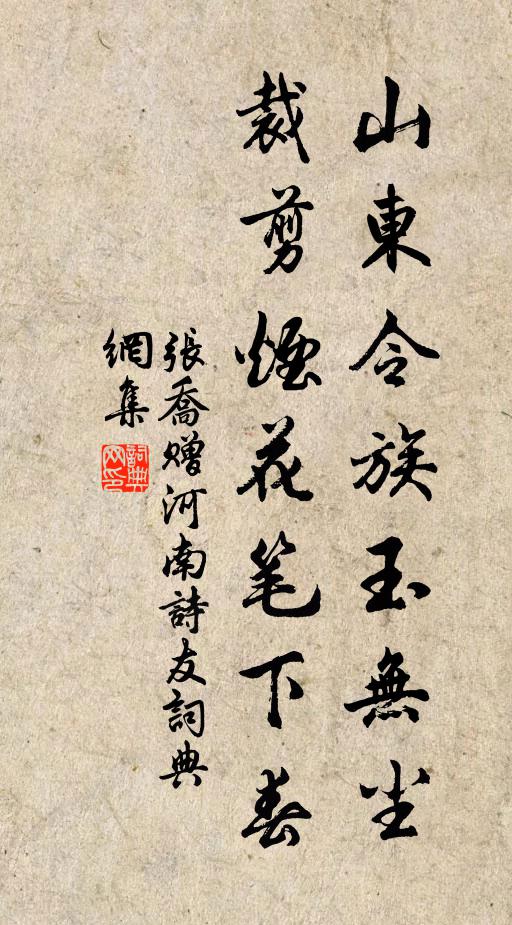 山東令族玉無尘
裁剪煙花笔下春
張喬赠河南詩友詞典
網集
詞典
网印